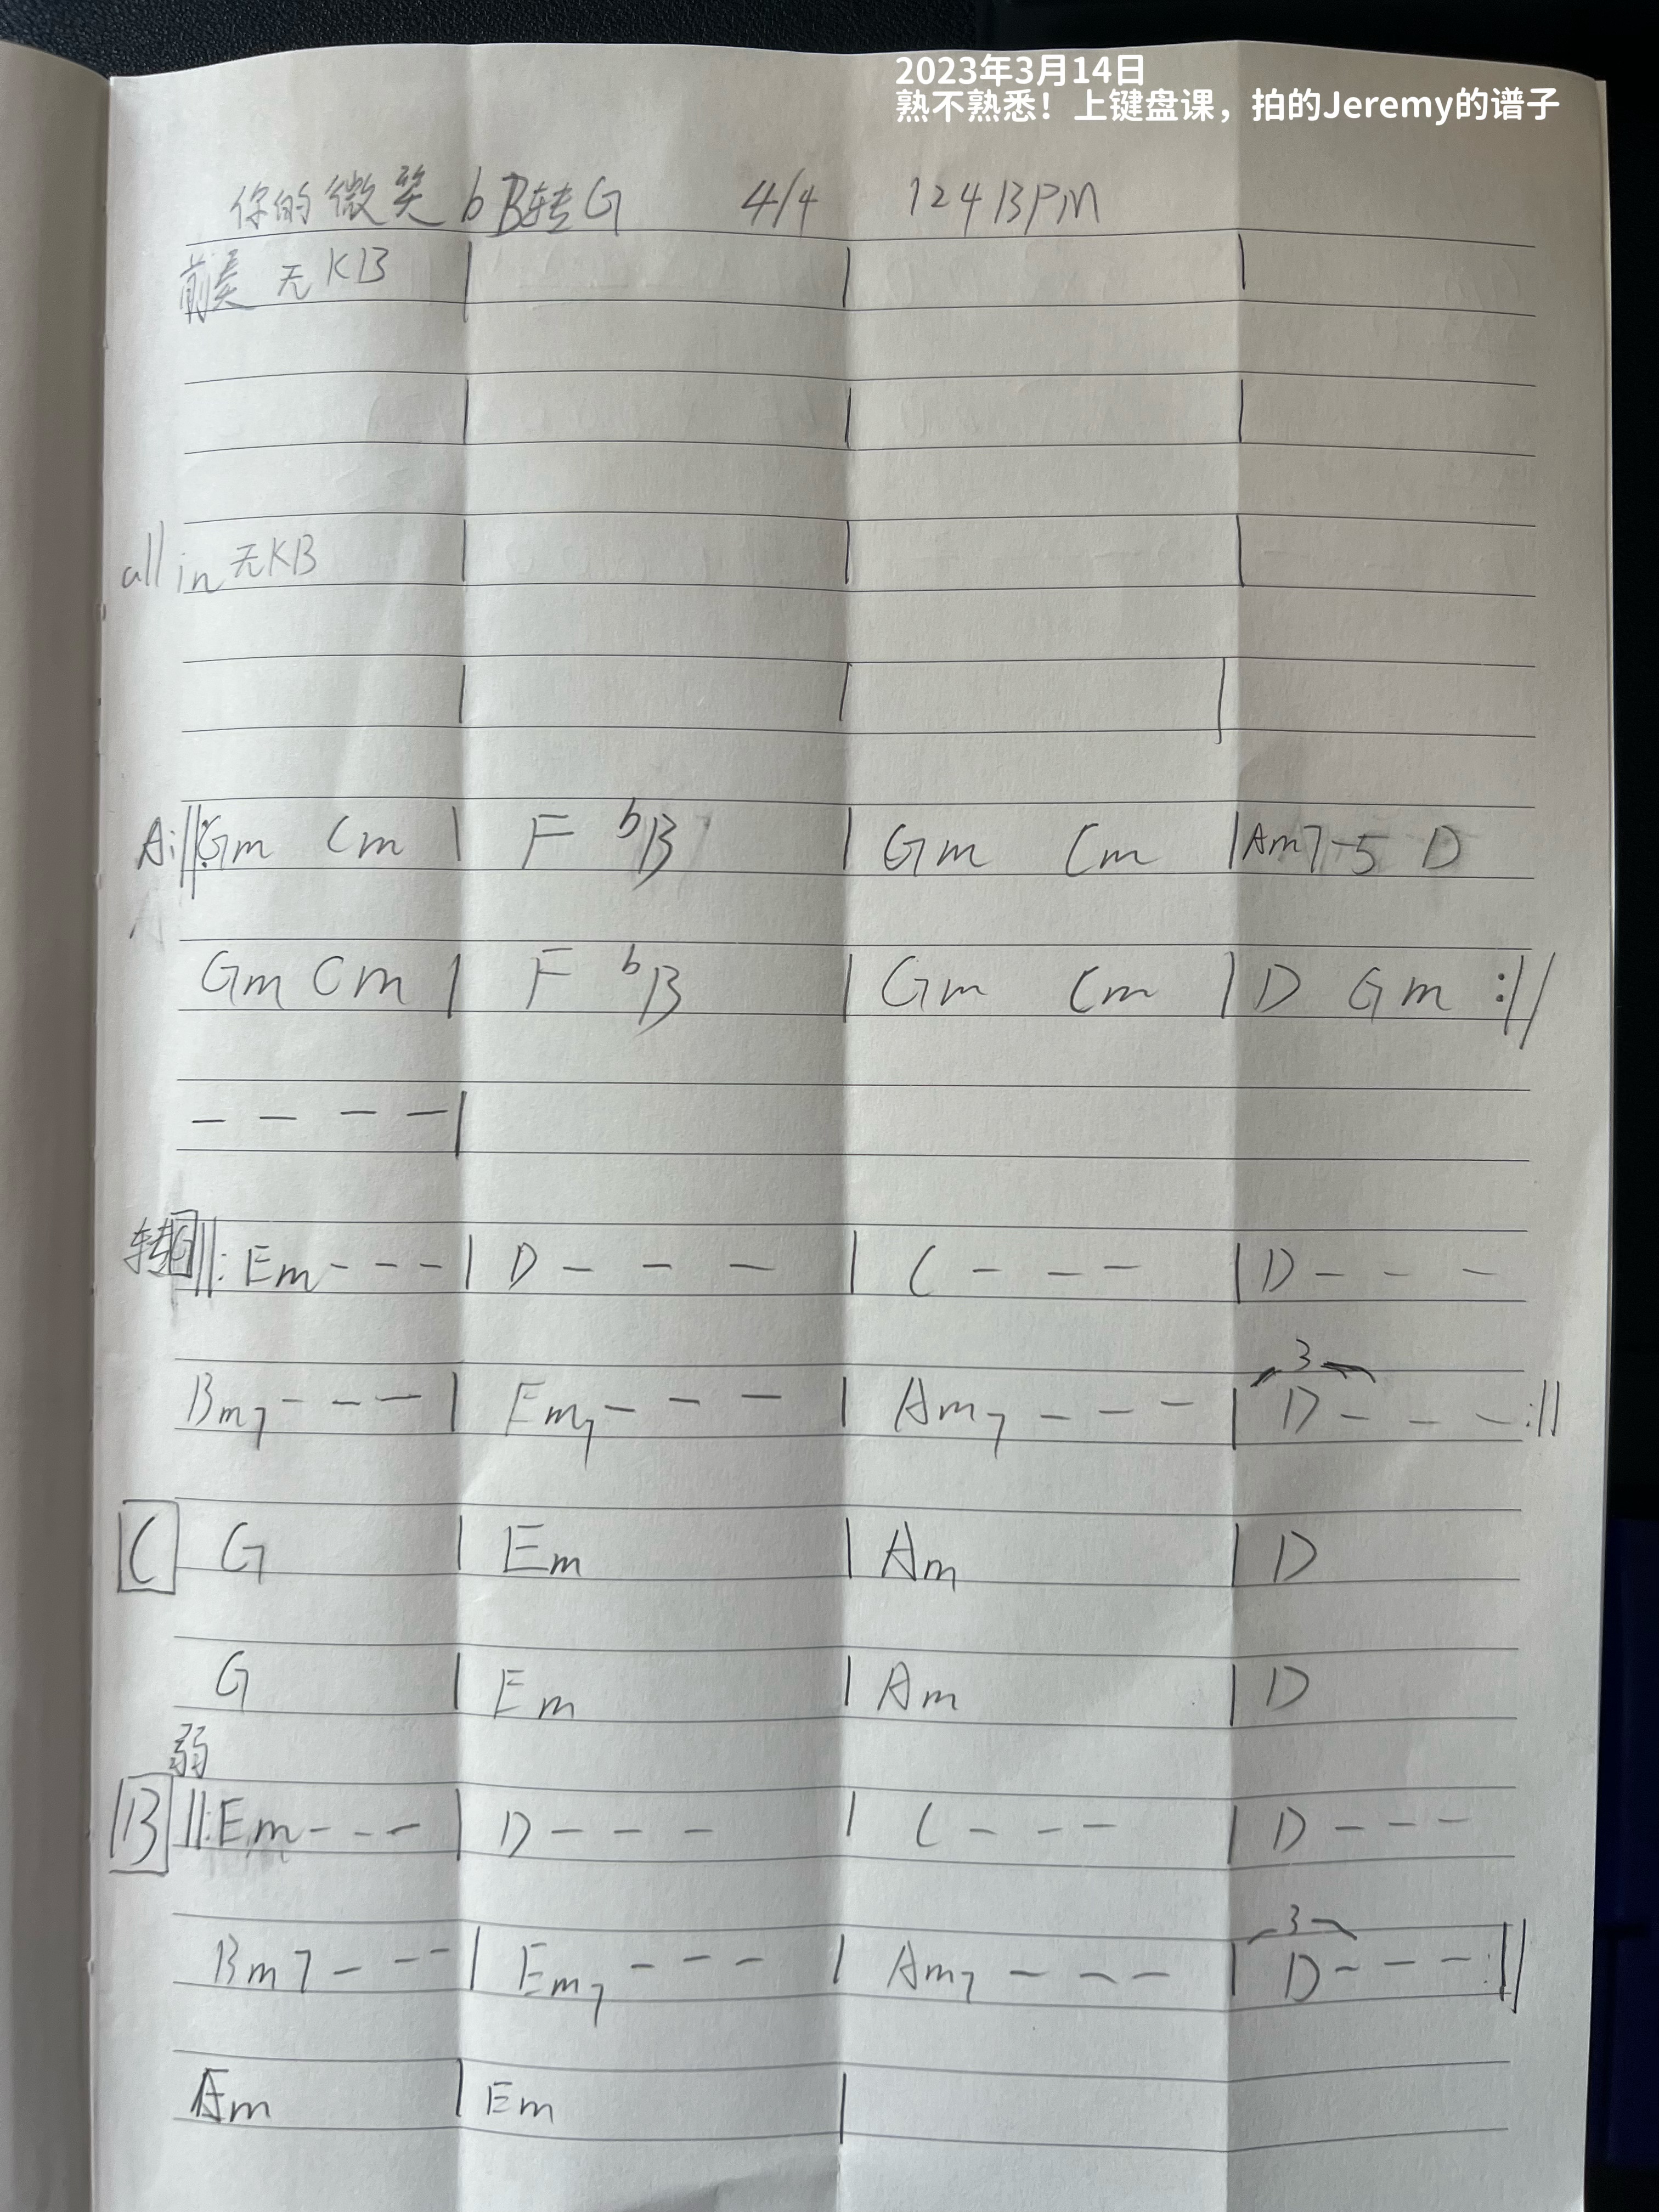 2023年3月14日
熟不熟悉！上键盘课，拍的Jeremy的谱子
你的微笑 bB转G 4/4 124BPM
前奏 无KB | | |
| | |
all in 无KB | | |
| | |
A: ||: Gm Cm | F bB | Gm Cm | Am7-5 D
Gm Cm | F bB | Gm Cm | D Gm :||
- - - - |
转G ||: Em - - - | D - - - | C - - - | D - - -
3
Bm7 - - - | Em7 - - - | Am7 - - - | D - - - :||
C G | Em | Am | D
G | Em | Am | D
弱
B ||: Em - - - | D - - - | C - - - | D - - -
3
Bm7 - - - | Em7 - - - | Am7 - - - | D - - - :||
| Em |